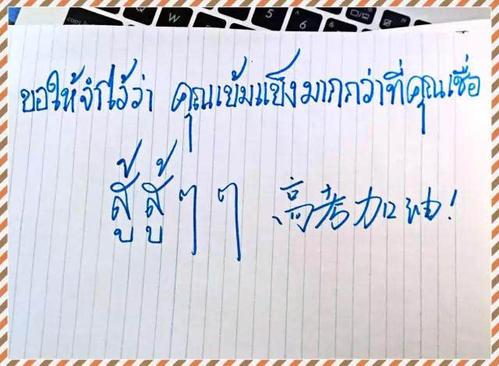 ขอให้จำไว้ว่า คุณเข้มแข็งมากกว่าที่คุณเชื่อ
สู้สู้ๆๆ 高考加油!